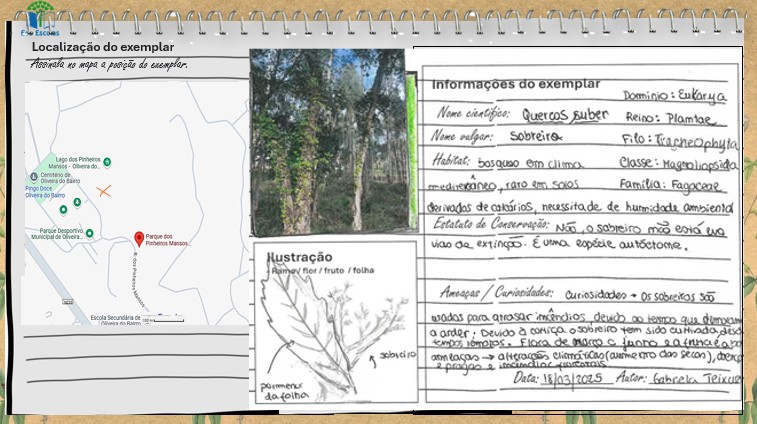 Eco Escolas
Localização do exemplar
Assinala no mapa a posição do exemplar.
Lago dos Pinheiros
Mansos - Oliveira do...
Cemitério de
Oliveira do Bairro
Pingo Doce
Oliveira do Bairro
Parque Desportivo
Municipal de Oliveira...
Parque dos
Pinheiros Mansos...
R. dos Pinheiros Mansos
Escola Secundária de
Oliveira do Bairro
Ilustração
Ramo / flor / fruto / folha
sobreiro
pormenor
da folha
Informações do exemplar
Domínio: Eukarya
Nome científico: Quercos suber
Reino: Plantae
Nome vulgar: Sobreiro
Filo: Tracheophyta
Habitat: bosques em clima
Classe: Magnoliopsida
mediterrâneo, raro em solos
Família: Fagaceae
derivados de calcários, necessita de de humidade ambiental
Estatuto de Conservação: Não, o sobreiro não está em
vias de extinção. É uma espécie autóctone.
Ameaças / Curiosidades: Curiosidades → Os sobreiros são
usados para atrasar incêndios devido ao tempo que demoram
a arder; Devido à cortiça o sobreiro tem sido cultivado desde
tempos remotos. Flora de março a junho e a
ameaças → alterações climáticas (aumento das secas),
e pragas e incêndios florestais
Data: 18/03/2025 Autor: Gabriela Teixeira